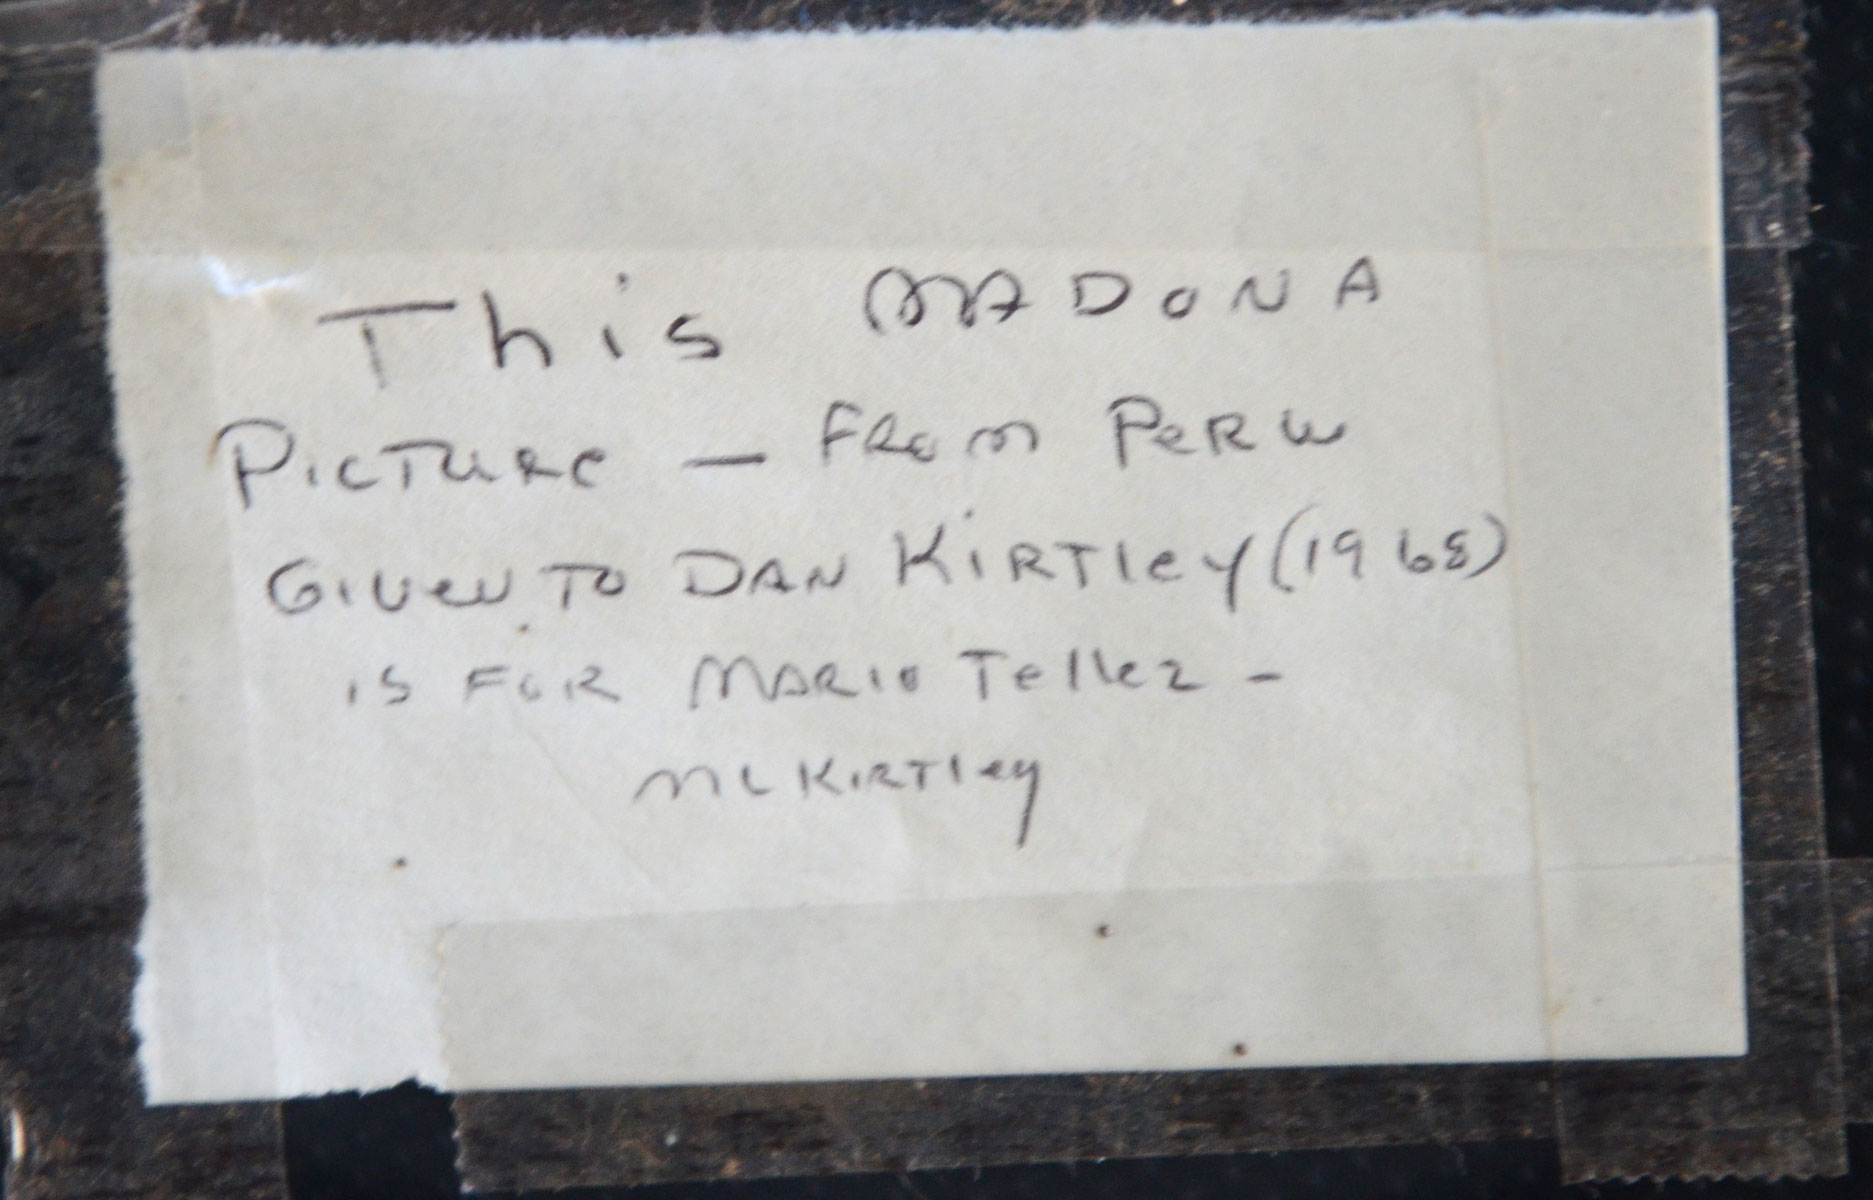 This MADONA
PICTURE — FROM PERU
GIVEN TO DAN KIRTLEY (1968)
IS FOR MARIO Tellez -
ML KIRTLEY